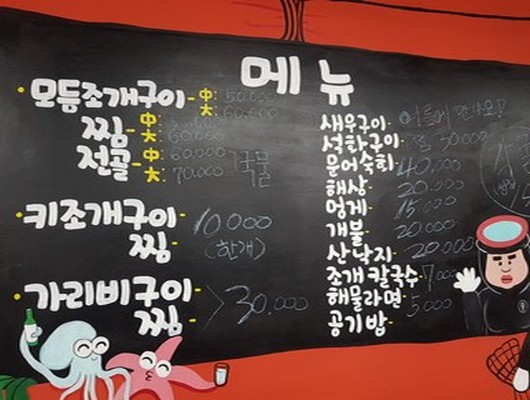 메뉴
모듬조개구이 中: 50.000
大: 60.000
찜 中:
大: 60.000
전골 中: 60.000
大: 70.000
국물
키조개구이 10.000
찜 (한개)
가리비구이 > 30.000
찜
새우구이
석화구이 30000
문어숙회 40.000
해삼 20.000
멍게 15.000
개불 20.000
산낙지 20.000
조개칼국수 7000
해물라면 5000
공기밥